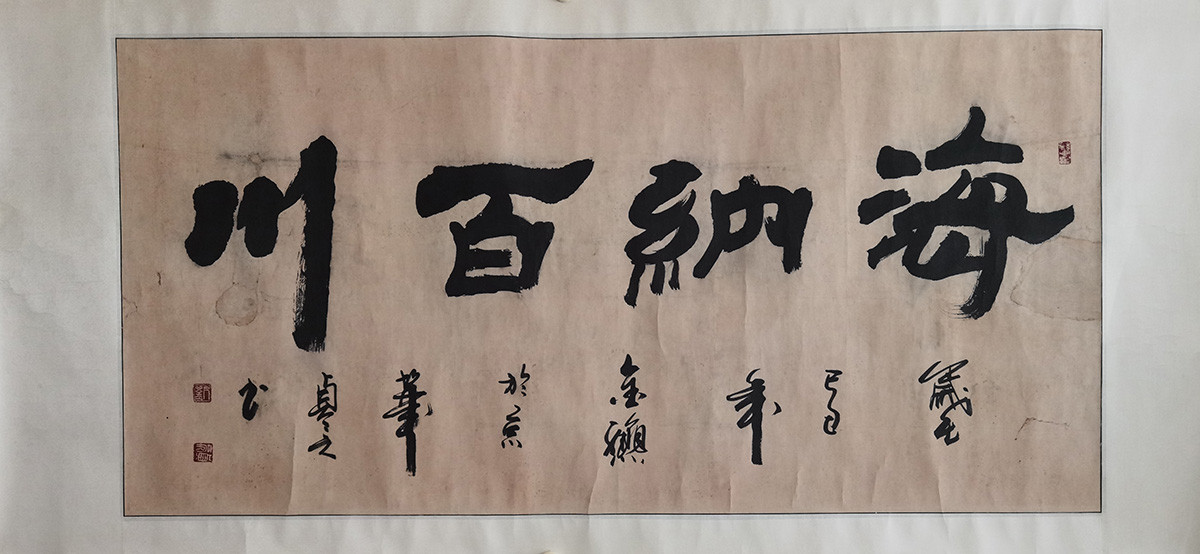 海納百川
歲在己巳年金 於京華 貞之書